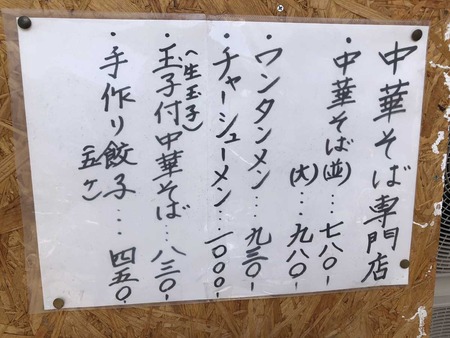 中華そば専門店
・中華そば(並)…七八〇-
(大)…九八〇-
・ワンタンメン…九三〇-
・チャーシューメン…一〇〇〇-
(生玉子)
・玉子付中華そば…八三〇-
・手作り餃子…四五〇
(五ケ)